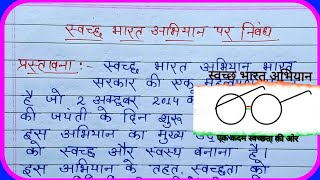 स्वच्छ भारत अभियान पर निबंध
प्रस्तावना :- स्वच्छ भारत अभियान भारत
सरकार की एक
है जो 2 अक्टूबर 2014 को
की जयंती के दिन शुरू
इस अभियान का मुख्य
को स्वच्छ और स्वस्थ बनाना है।
इस अभियान के तहत, स्वच्छता को
स्वच्छ भारत अभियान
एक कदम स्वच्छता की ओर